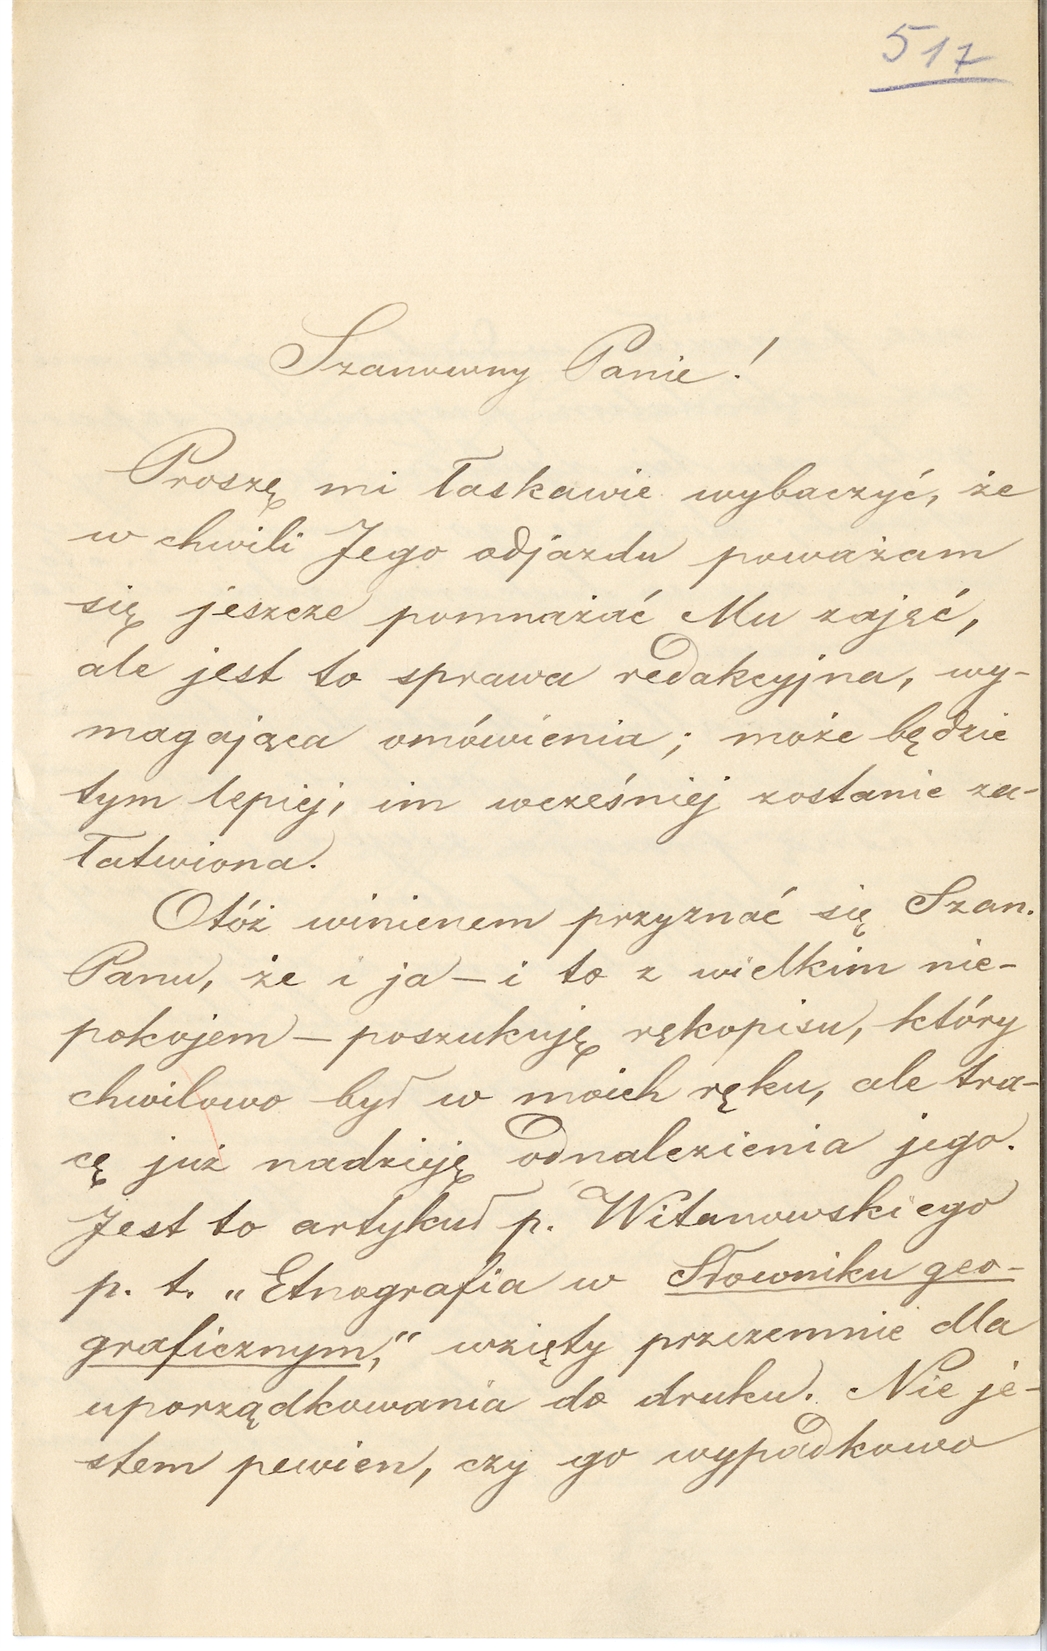 517
Szanowny Panie!
Proszę mi łaskawie wybaczyć, że
w chwili Jego odjazdu poważam
się jeszcze pomnażać Mu zajęć,
ale jest to sprawa redakcyjna, wy-
magająca omówienia; może będzie
tym lepiej, im wcześniej zostanie za-
łatwiona.
Otóż winienem przyznać się Szan.
Panu, że i ja – i to z wielkim nie-
pokojem – poszukuję rękopisu, który
chwilowo był w moich ręku, ale tra-
cę już nadzieję odnalezienia jego.
Jest to artykuł p. Witanowskiego
p. t. „Etnografia w Słowniku geo-
graficznym,“ wzięty przezemnie dla
uporządkowania do druku. Nie je-
stem pewien, czy go wypadkowo